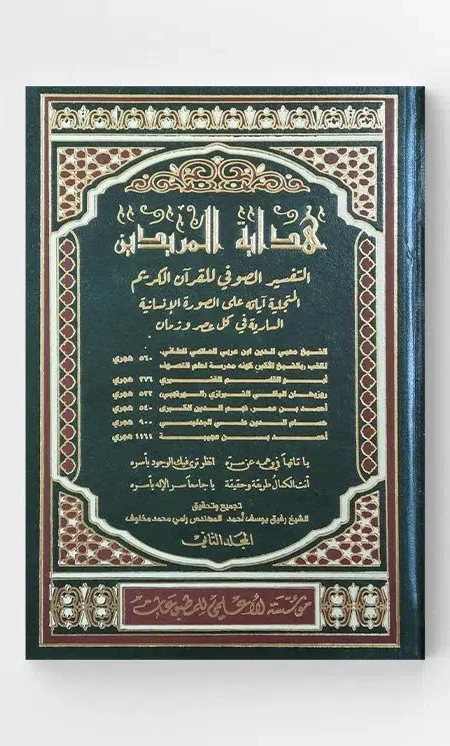 هداية المريدين
التفسير الصوفي للقرآن الكريم
المتجلية آياته على الصورة الإنسانية
السارية في كل عصر وزمان
الشيخ محيي الدين ابن عربي الحاتمي الطائي ٥٦٠ هجري
الملقب بالشيخ الأكبر، كونه مدرسة لعلم التصوف
أبو القاسم القشيري ٣٧٦ هجري
روزبهان البقلي الشيرازي ٥٢٢ هجري
أحمد بن عمر نجم الدين الكبرى ٥٤٠ هجري
الدين علي البدليسي ٦٠٠ هجري
أحمد بن عجيبة ١١٦١ هجري
يا تائهاً في وهمه عن سرّه انظر ترى فيك الوجود بأسره
أنت الكمال طريقة وحقيقة يا جامعاً سر الإله بأسره
تجميع وتحقيق
الشيخ رفيق يوسف أحمد المهندس رامي محمد مخلوف
المجلد الثاني
مؤسسة الأعلمي للمطبوعات